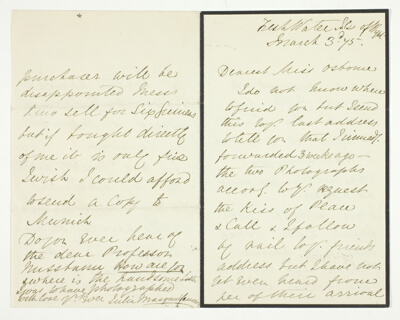 Fresh Water Isle of W
March 3rd 75.
Dearest Miss Osborne
I do not know where
to find you but I send
this by last address
to tell you that I immedy.
forwarded 3 weeks ago —
the two Photographs
accord. to yr. request
the Kiss of Peace
& Call & I follow
by rail to yr. friends
address but I have not
yet even heard from
her of their arrival
purchaser will be
disappointed Messrs
sell for Six Guineas
but if bought directly
of me it is only five
I wish I could afford
to send a Copy to
Munich
Do you ever hear of
the dear Professor
Nussbaum How are you
& where is the handsome
I was to have photographed
with love yrs ever Julia Margaret